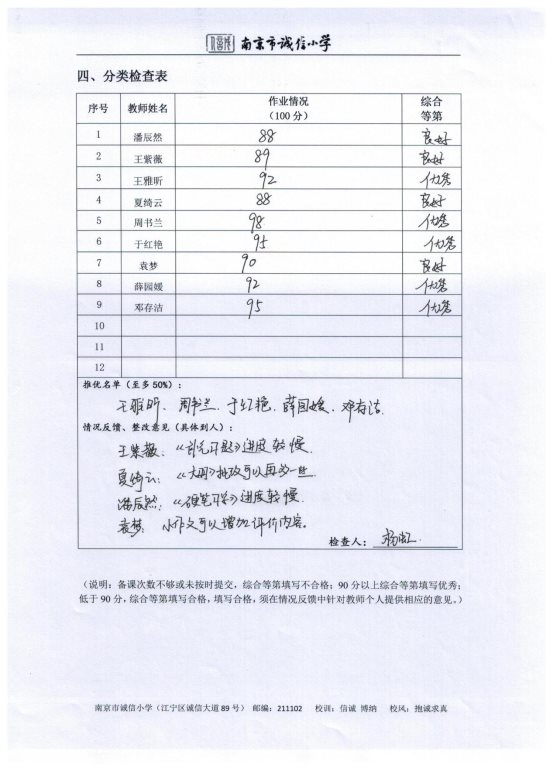 南京市诚信小学
四、分类检查表
序号 教师姓名 作业情况（100 分） 综合等第
1 潘辰然 88 良好
2 王紫薇 89 良好
3 王雅昕 92 优秀
4 夏绮云 88 良好
5 周书兰 98 优秀
6 于红艳 95 优秀
7 袁梦 90 良好
8 薛园媛 92 优秀
9 邓存洁 95 优秀
10
11
12
推优名单（至多 50%）：
王雅昕、周书兰、于红艳、薛园媛、邓存洁
情况反馈、整改意见（具体到人）：
王紫薇：《补充习题》进度较慢.
夏绮云：《大册》批改可以再一些
潘辰然：《硬笔习字》进度较慢.
袁梦：小作文可以增加评价内容。
检查人：杨虹
（说明：备课次数不够或未按时提交，综合等第填写不合格；90 分以上综合等第填写优秀；
低于 90 分，综合等第填写合格，填写合格，须在情况反馈中针对教师个人提供相应的意见。）
南京市诚信小学（江宁区诚信大道 89 号） 邮编：211102 校训：信诚 博纳 校风：抱诚求真